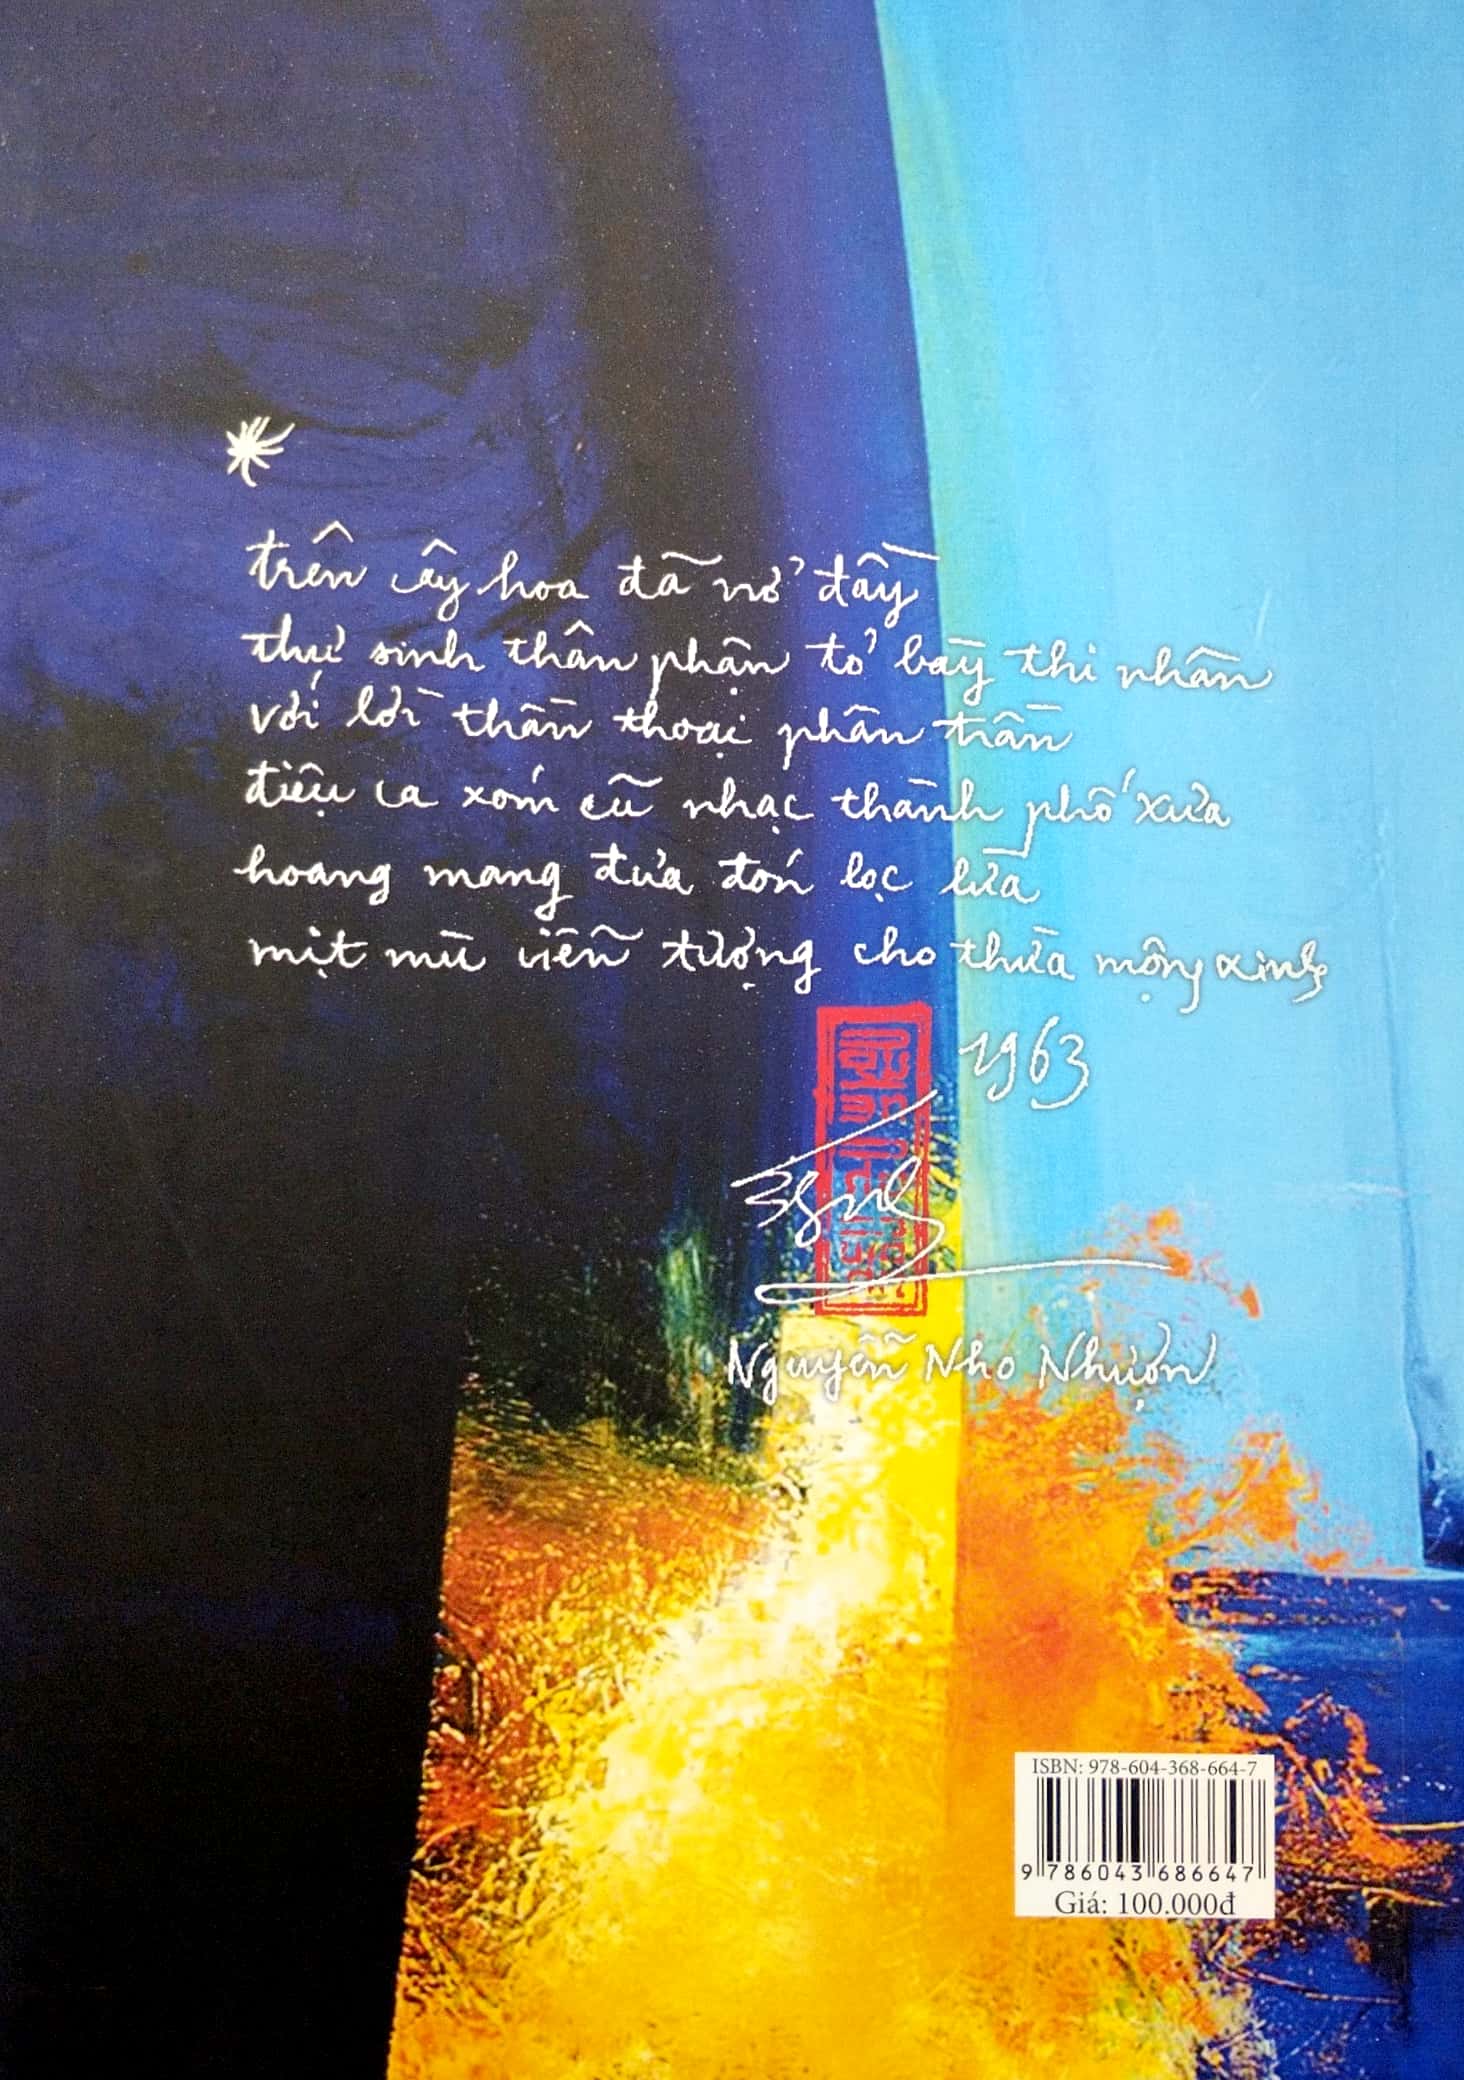 trên cây hoa đã nở đầy
thư sinh thân phận tỏ bày thi nhân
với lời thần thoại phân trần
điệu ca xóm cũ nhạc thành phố xưa
hoang mang đưa đón lọc lừa
mịt mù viễn tượng cho thừa mộng xinh
1963
Nguyễn Nho Nhượn
ISBN: 978-604-368-664-7
9 786043 686647
Giá: 100.000đ